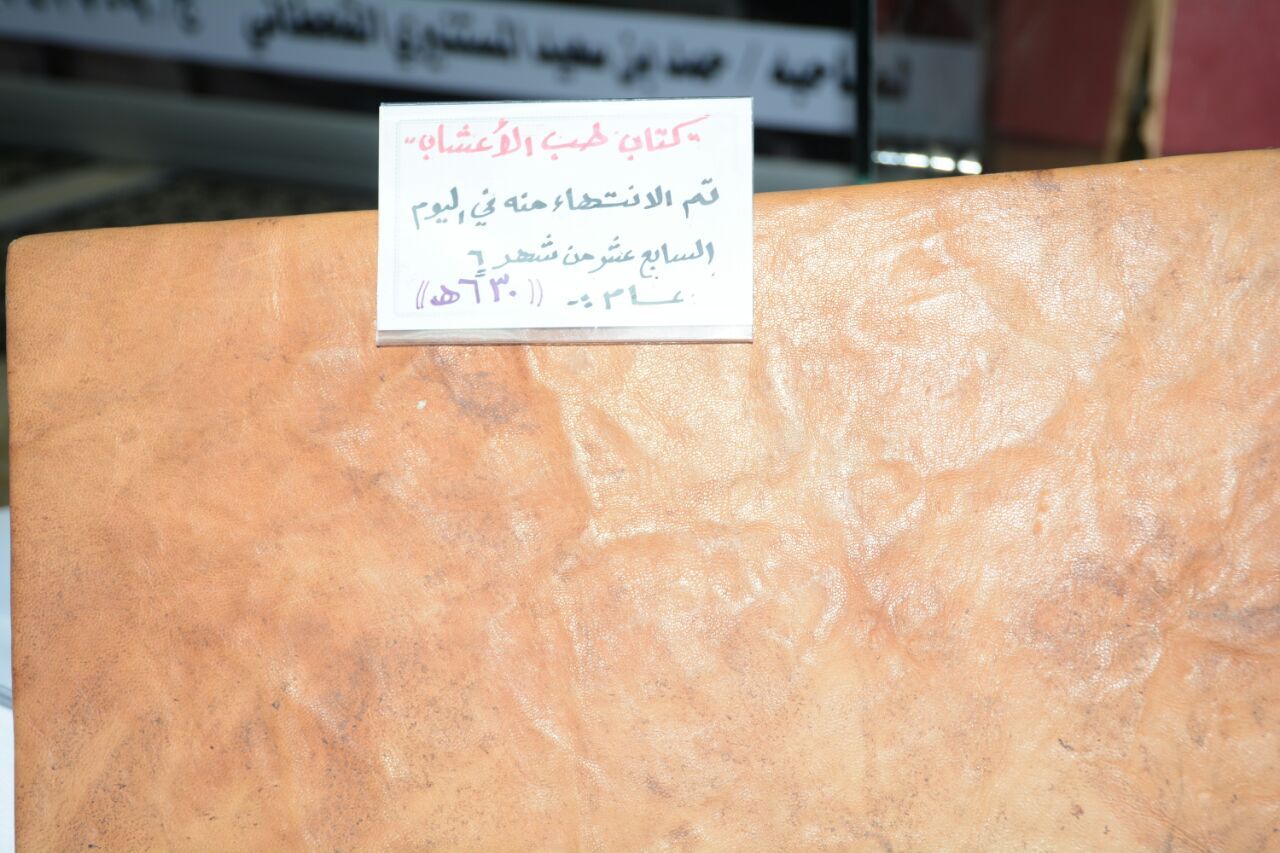 لصاحبه / حمد بن سعيد المستنير القحطاني
"كتاب طب الأعشاب"
تم الانتهاء منه في اليوم
السابع عشر من شهر ٦
عــام :- ((٦٣٠هـ))